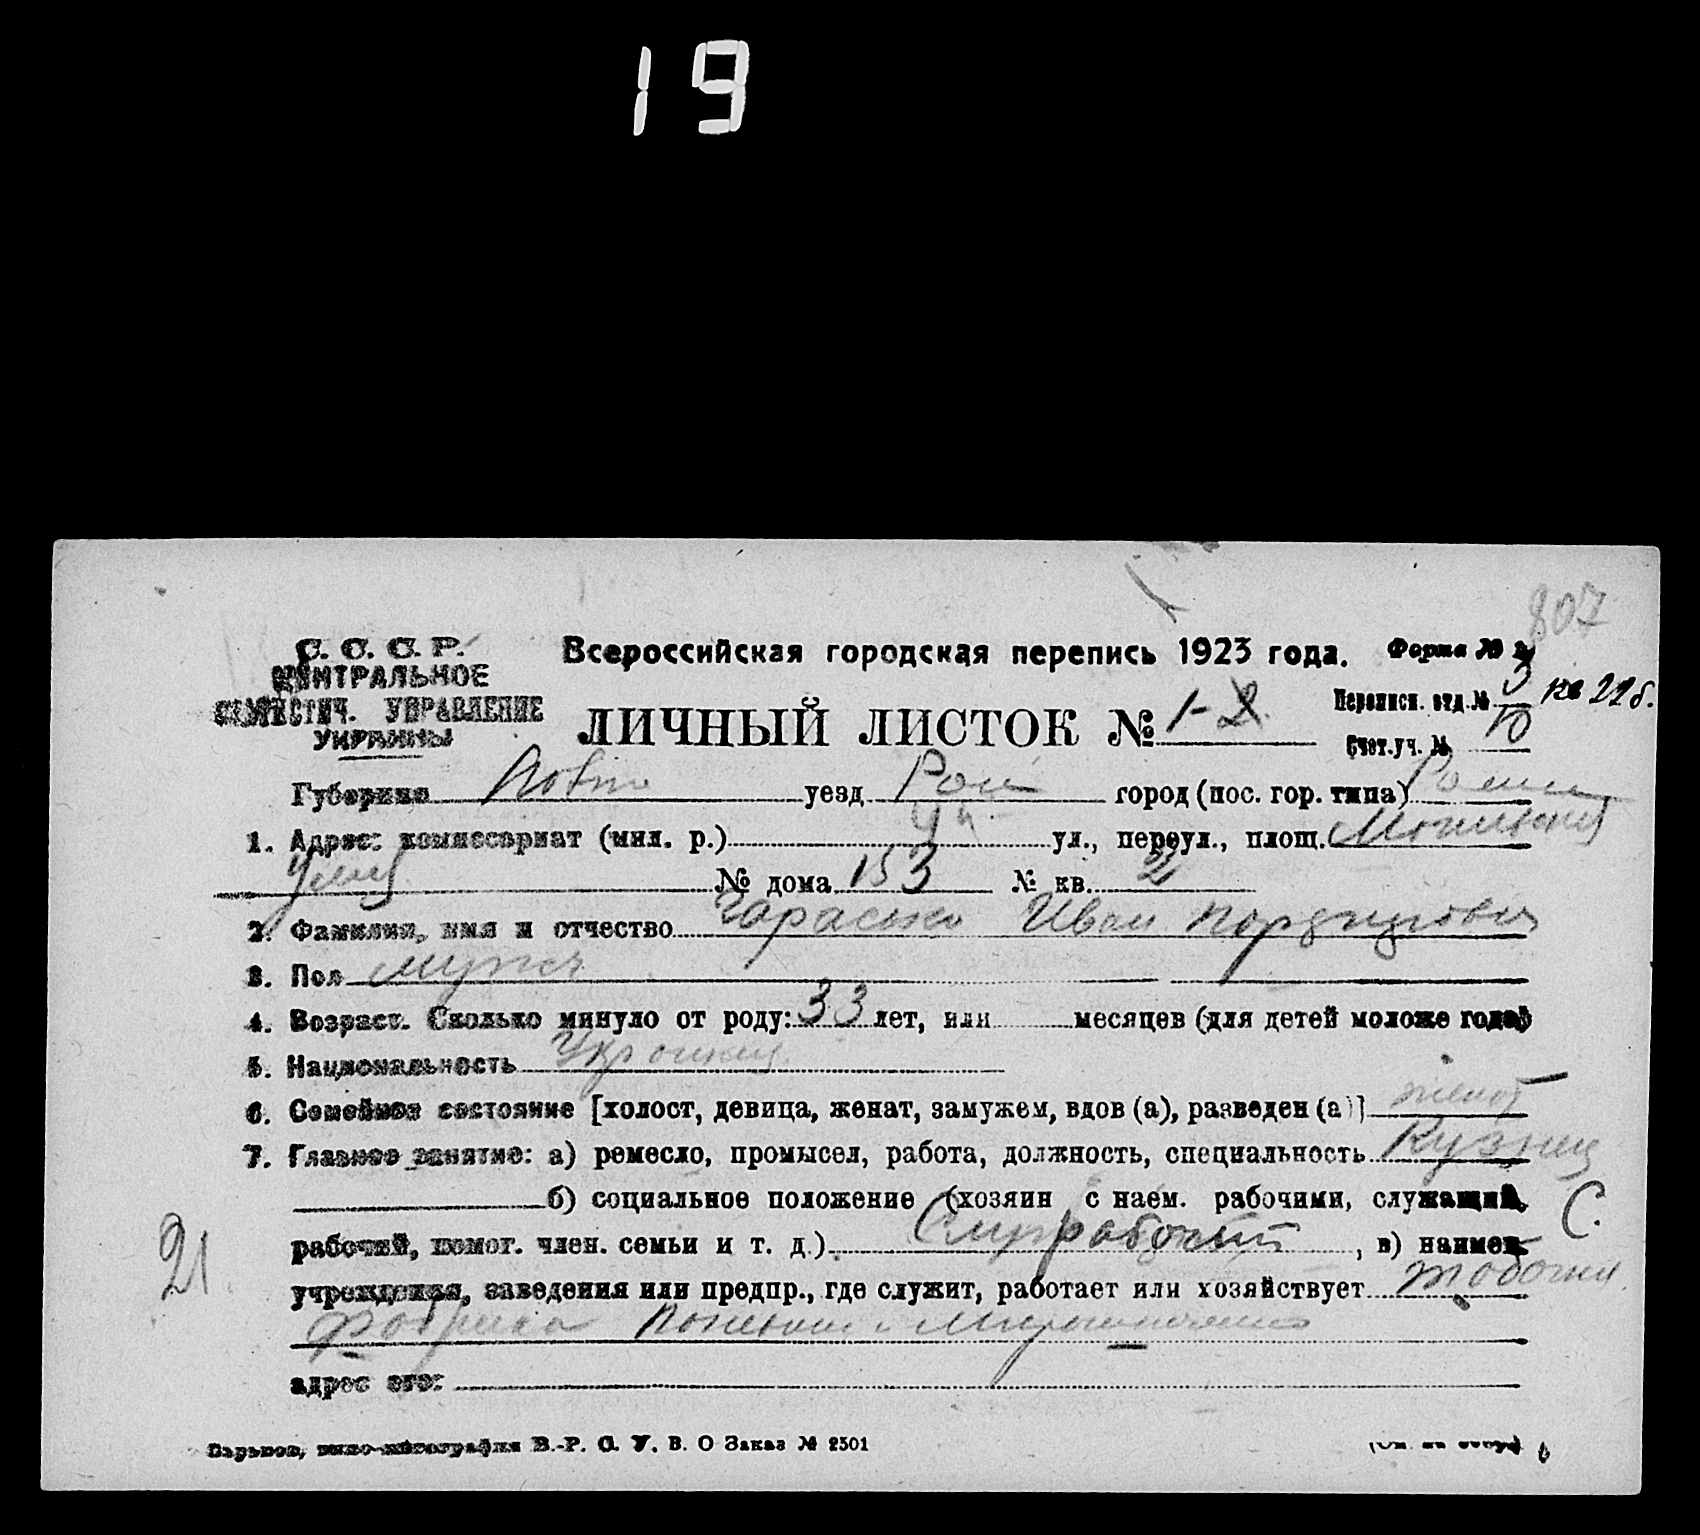 19
807
С. С. С. Р.
ЦЕНТРАЛЬНОЕ
СТАТИСТИЧ. УПРАВЛЕНИЕ
УКРАИНЫ
Всероссийская городская перепись 1923 года.
Форма № 2
ЛИЧНЫЙ ЛИСТОК № 1-2
Переписн. отд. № 3
Счет. уч. № 10
Губерния уезд Ром город (пос. гор. типа) Ромны
1. Адрес: комиссариат (мил. р.) ул., переул., площ.
№ дома 153 № кв. 2
2. Фамилия, имя и отчество Тарасенко Иван
3. Пол мужч
4. Возраст. Сколько минуло от роду: 33 лет, или месяцев (для детей моложе года)
5. Национальность
6. Семейное состояние [холост, девица, женат, замужем, вдов (а), разведен (а)] женат
7. Главное занятие: а) ремесло, промысел, работа, должность, специальность Кузнец
б) социальное положение (хозяин с наем. рабочими, служащий, С.
21 рабочий, помог. член. семьи и т. д.) рабочий, в) наимен.
учреждения, заведения или предпр., где служит, работает или хозяйствует
Фабрика
адрес его:
Харьков, типо-литография В.-Р. С. У. В. О Заказ № 2501
(См. на обор.)